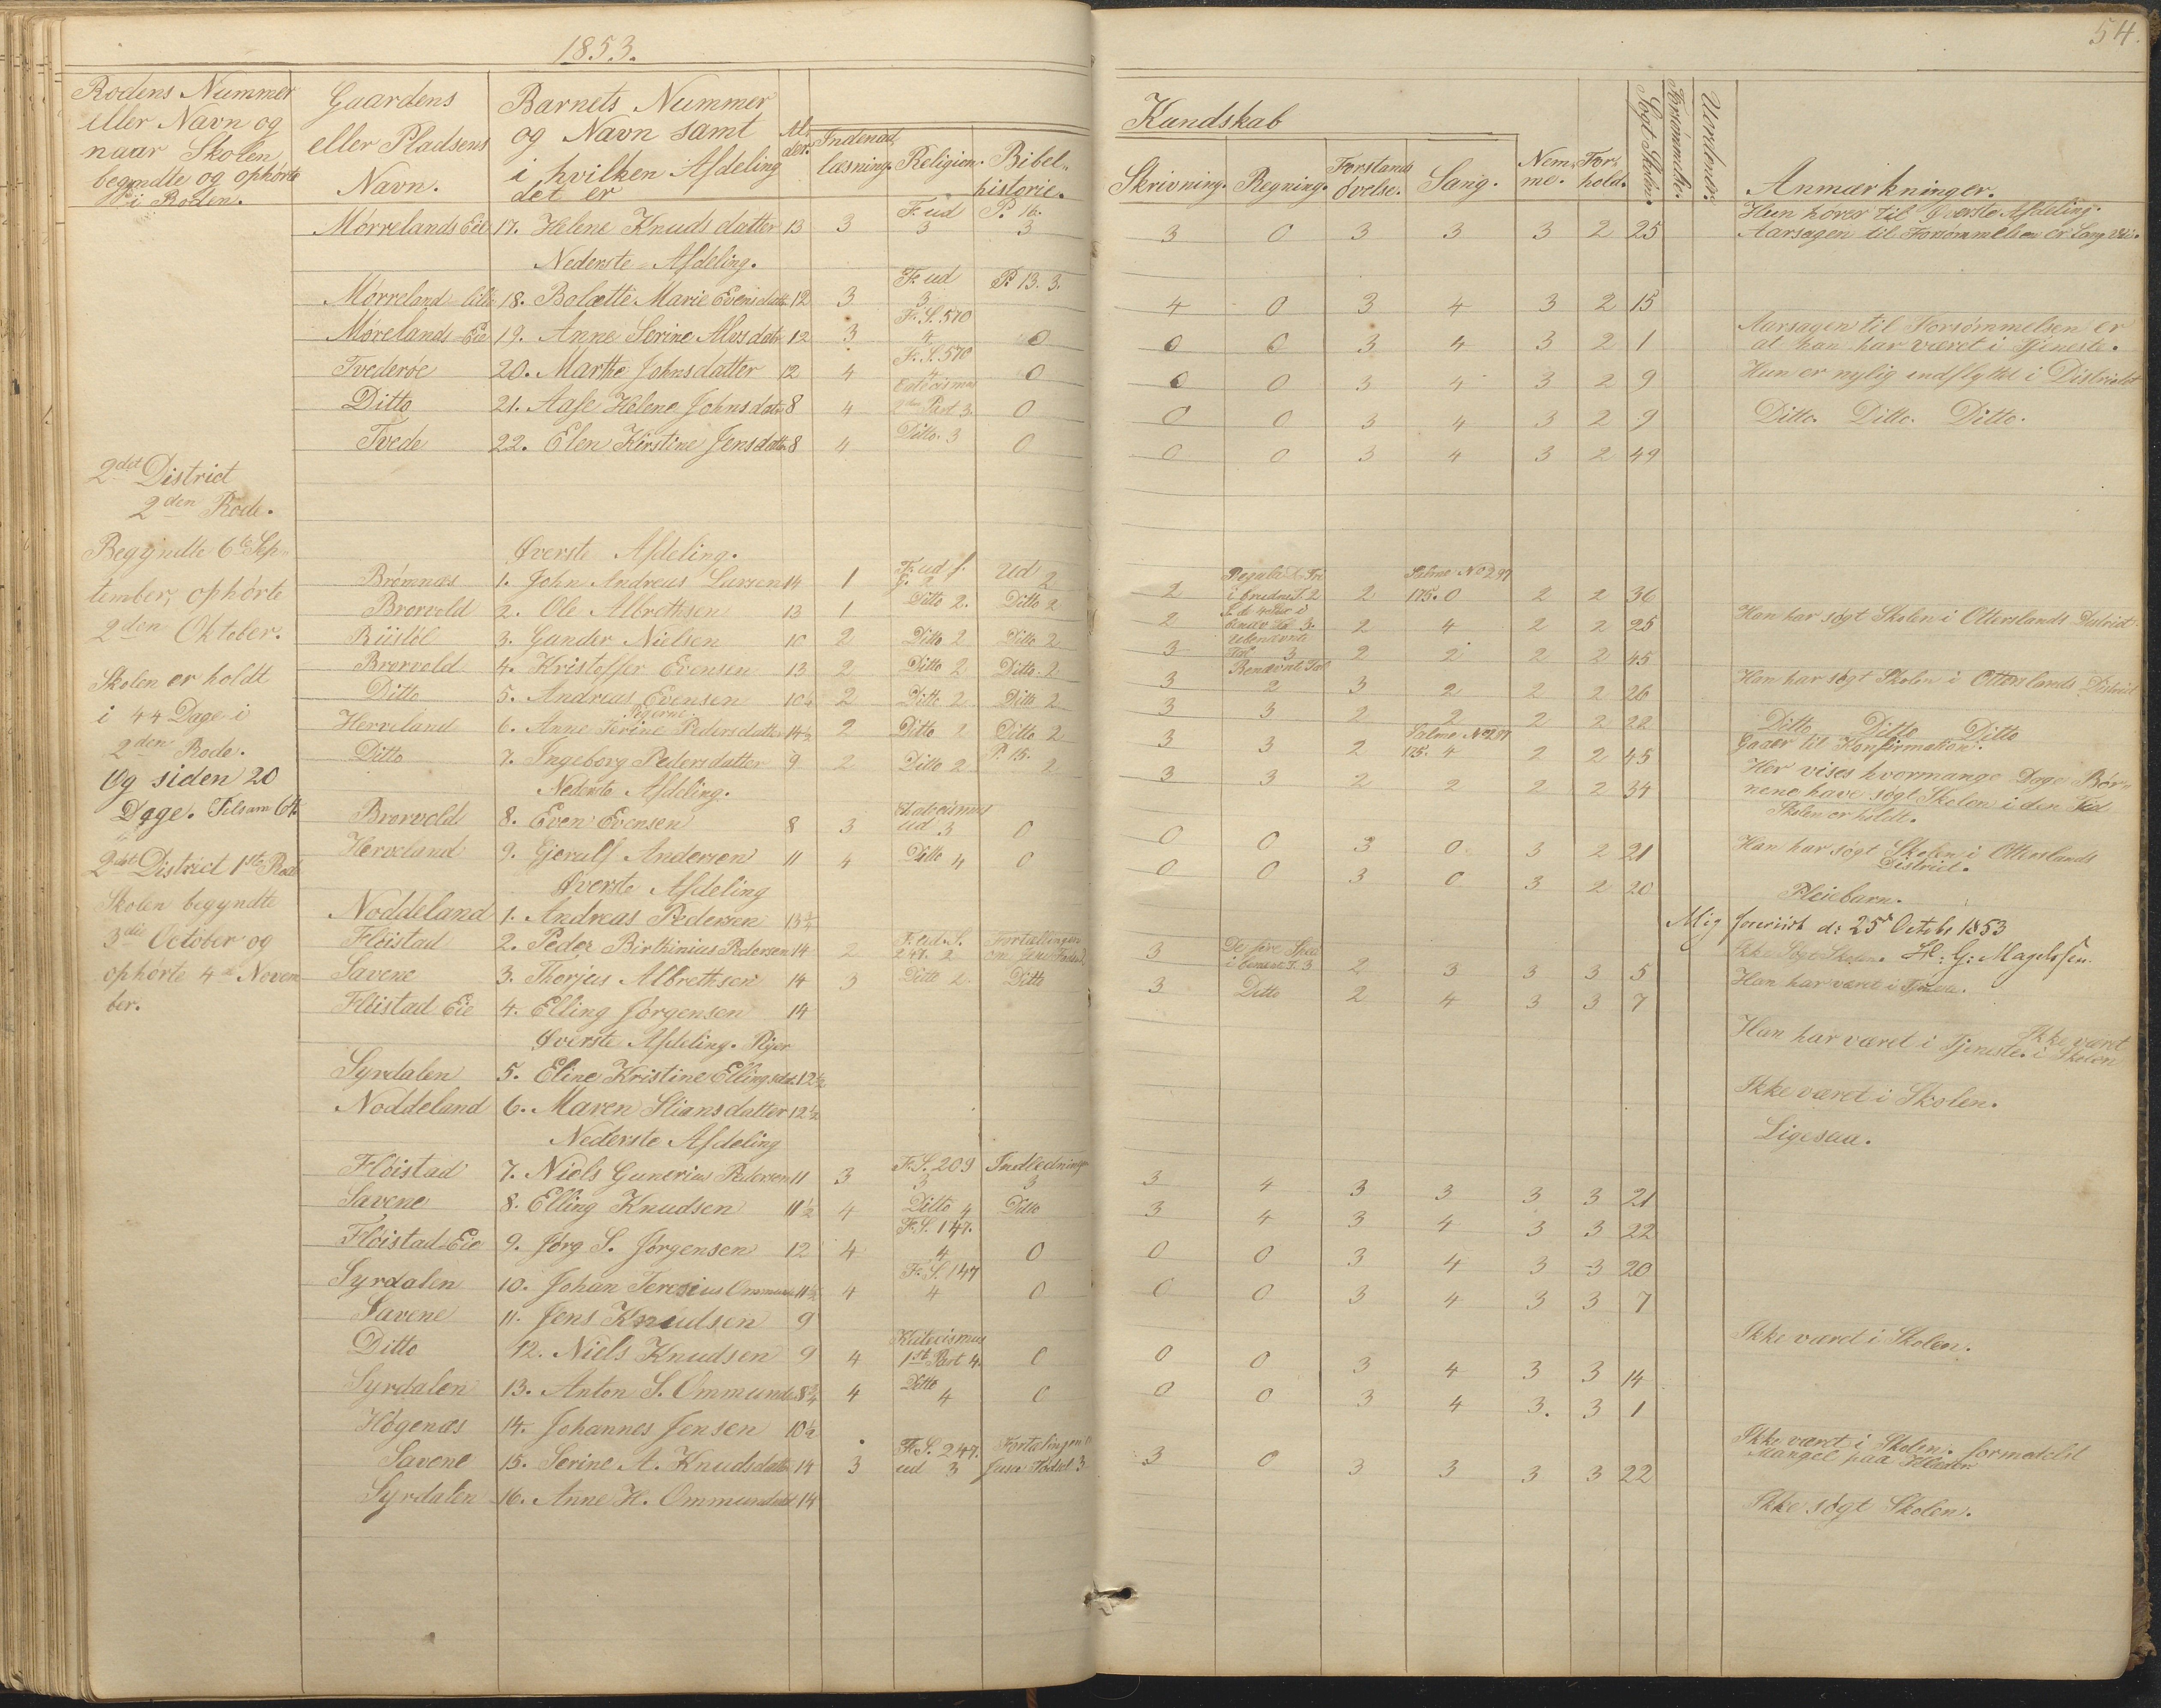 1853.
54.
Rodens Nummer
eller Navn og
naar Skolen
begyndte og ophørte
i Roden.
Gaardens
eller Pladsens
Navn.
Barnets Nummer
og Navn samt
i hvilken Afdeling
det er
Al-
der.
Indenad
læsning.
Religion.
Bibel-
historie.
Kundskab
Skrivning.
Regning.
Forstands
Øvelse.
Sang.
Nem-
me.
For-
hold.
Søgt Skolen.
Forsømmelse.
Uordener.
Anmærkninger.
Mørrelands Eie 17. Helene Knudsdatter 13 3 F. ud 3 P. 16. 3 3 0 3 3 3 2 25 Hun hører til Øverste Afdeling.
Aarsagen til Forsømmelsen er Lang Vei.
Nederste Afdeling.
Mørreland lille 18. Bolette Marie Evensdatt 12 3 F. ud 3 P. 13. 3. 4 0 3 4 3 2 15
Mørelands Eie 19. Anne Serine Alvsdatr 12 3 F. S. 570 4 0 0 0 3 4 3 2 1 Aarsagen til Forsømmelsen er
at han har været i Tjeneste.
Tvederøe 20. Marthe Johnsdatter 12 4 F. S. 570 4 0 0 0 3 4 3 2 9 Hun er nylig indflyttet i Districtet
Ditto 21. Aase Helene Johnsdatr 8 4 Catecismus 2den Part 3. 0 0 0 3 4 3 2 9 Ditto. Ditto. Ditto.
Tvede 22. Elen Kirstine Jensdatter 8 4 Ditto. 3 0 0 0 3 4 3 2 49
2det District
2den Rode.
Begyndte 6te Sep-
tember, ophørte
2den Oktober.
Skolen er holdt
i 44 Dage i
2den Rode.
Og siden 20
Dage. Tilsam 64.
Øverste Afdeling.
Brømnæs 1. John Andreas Larsen 14 1 F. ud f. 2 Ud 2 2 Regula de Tri i brudne T. 2 2 Salme No 297 175. 0 2 2 36
Brorvold 2. Ole Albrethsen 13 1 Ditto 2. Ditto 2 2 3. 2 4 2 2 25 Han har søgt Skolen i Otterslands District
Riisløl 3. Gunder Nielsen 10 2 Ditto 2 Ditto 2 3 Ubenævnte Tal 3 2 2 2 2 45
Brorvold 4. Kristoffer Evensen 13 2 Ditto 2 Ditto. 2 3 Benævnte Tal 2 3 2 2 2 26 Han har søgt Skolen i Otterslands District
Ditto 5. Andreas Evensen 10½ 2 Ditto 2 Ditto 2 3 3 2 2 2 2 22 Ditto Ditto Ditto
Pigerne
Herveland 6. Anne Terine Pedersdatter 14½ 2 Ditto 2 Ditto 2 3 3 2 Salme No 297 175. 4 2 2 45 Gaaer til Konfirmation.
Ditto 7. Ingeborg Pedersdatter 9 2 Ditto 2 P. 15. 2 3 3 2 2 2 2 34 Her vises hvormange Dage Bør-
nene have søgt Skolen i den Tid
Skolen er holdt.
Nederste Afdeling.
Brorvold 8. Even Evensen 8 3 Katecismus ud 3 0 0 0 3 0 3 2 21 Han har søgt Skolen i Otterslands
District.
Herveland 9. Gjerulf Andersen 11 4 Ditto 4 0 0 0 3 0 3 2 20 Pleiebarn.
2det District 1ste Rode
Skolen begyndte
3die October og
ophørte 4de Novem
ber.
Øverste Afdeling
Mig foreviist d: 25de Octobr 1853
H: G: Magelssen.
Noddeland 1. Andreas Pedersen 13¾ Ikke Søgt Skolen.
Fløistad 2. Peder Birthinius Pedersen 14 2 F. ud S. 247. 2 Fortællingen om 3 De fire Spec i benævt T. 3 2 3 3 3 5 Han har været i Tjeneste.
Savene 3. Thorjus Albrethsen 14 3 Ditto 2. Ditto 3 Ditto 2 4 3 3 7
Fløistad Eie 4. Elling Jørgensen 14 Han har været i Tjeneste. Ikke været
i Skolen
Øverste Afdeling. Piger
Syrdalen 5. Eline Kristine Ellingsdat. 12½ Ikke været i Skolen.
Noddeland 6. Maren Stiansdatter 12½ Ligesaa.
Nederste Afdeling
Fløistad 7. Niels Gunerius Pedersen 11 3 F. S. 209 3 Indledningen 3 3 4 3 3 3 3 21
Savene 8. Elling Knudsen 11½ 4 Ditto 4 Ditto 3 4 3 4 3 3 22
Fløistad Eie 9. Jørg S. Jørgensen 12 4 F. S. 147. 4 0 0 0 3 4 3 3 20
Syrdalen 10. Johan Teresius Ommunds 11½ 4 F. S. 147 4 0 0 0 3 4 3 3 7
Savene 11. Jens Knudsen 9 Ikke været i Skolen.
Ditto 12. Niels Knudsen 9 4 Katecismus 1ste Part 4. 0 0 0 3 4 3 3 14
Syrdalen 13. Anton S. Ommunds 8¾ 4 Ditto 4 0 0 0 3 4 3. 3 1
Høgenæs 14. Johannes Jensen 10½ Ikke været i Skolen. formedelst
Mangel paa Klæder
Savene 15. Serine A. Knudsdatter 14 3 F. S. 247. ud 3 Fortælingen Jesu Fødsel 3 3 0 3 3 3 3 22
Syrdalen 16. Anne H. Ommundsdatt 14 Ikke søgt Skolen.